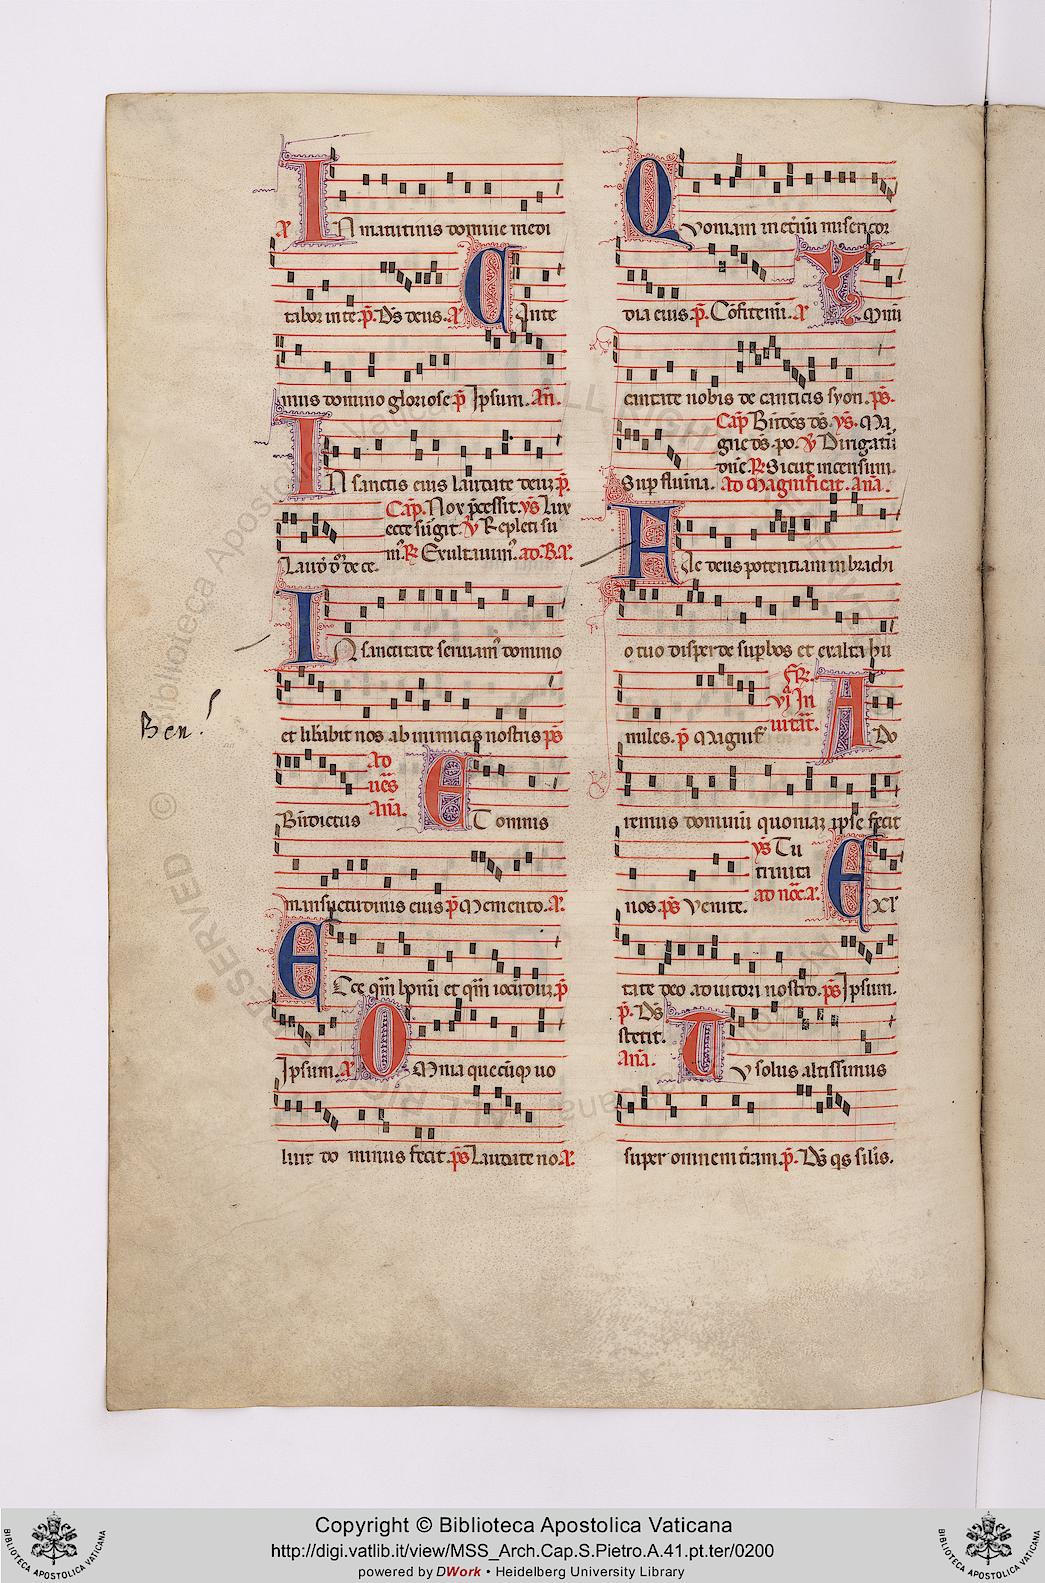 A. IN matutinis domine medi
tabor in te. p̄. Ds̄ deus. A. Cante
mus domino gloriose. p̄. Ipsum. An̄.
IN sanctis eius laudate deuʒ. p̄.
Cap̄. Nox p̄cessit. ys̄. Lux
ecce surgit. V̄. Repleti su
Laud̄ d̄
m̄. R. Exultauim̄. ad. B. A.
IN sanctitate seruiam̄ domino
et lib̄abit nos ab inimicis nostris ps̄
Bn̄dictus
Ad
ues̄
An̄a.
ET omnis
mansuetudinis eius. p̄. Memento. A.
Ecce qm̄ bonū et qm̄ iocūduʒ. p̄
Ipsum. A. OMnia quecūqȝ uo
luit do minus fecit. ps̄. Laudate no. A.
Quoniam in et̄nū misericor
dia eius. p̄. Cōfitemī. A. Ymnū
cantate nobis de canticis syon. ps̄.
Cap̄. Bn̄dc̄s ds̄. ys̄. Ma
gne ds̄. po. V̄. Dirigatū
dn̄e. R. Sicut incensum.
Sup̄ flumina. Ad Magnificat. An̄a.
Fac deus potentiam in brachi
o tuo disperde sup̄bos et exalta hu
miles. p̄. Magnif̄
Fr̄.
vj. In
uitat̄.
ADo
remus dominū quoniaʒ ipse fecit
nos. ps̄. Venite.
ys̄. Tu
trinita
ad noc̄. A.
EXul
tate deo adiutori nostro. ps̄. Ipsum.
p̄. Ds̄
stetit.
An̄a.
TV solus altissimus
super omnem tr̄am. p̄. Ds̄ qs̄ silis̄.
Ben!
BIBLIOTECA APOSTOLICA VATICANA
Copyright © Biblioteca Apostolica Vaticana
http://digi.vatlib.it/view/MSS_Arch.Cap.S.Pietro.A.41.pt.ter/0200
powered by DWork • Heidelberg University Library
BIBLIOTECA APOSTOLICA VATICANA